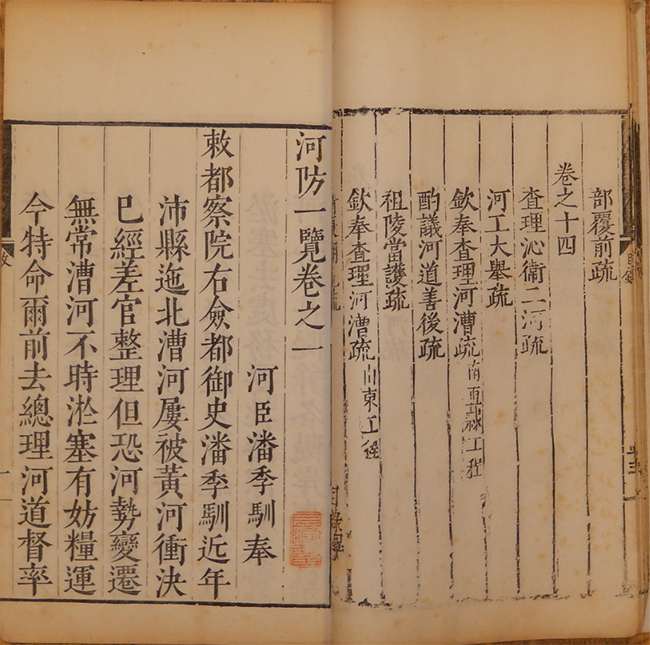 部覆前疏
卷之十四
查理沁衛二河疏
河工大舉疏
欽奉查理河漕疏南直隸工程
酌議河道善後疏
祖陵當護疏
欽奉查理河漕疏山東工程
目錄畢
河防一覽卷之一
河臣潘季馴奉
敕都察院右僉都御史潘季馴近年
沛縣迤北漕河屢被黃河衝決
已經差官整理但恐河勢變遷
無常漕河不時淤塞有妨糧運
今特命爾前去總理河道督率